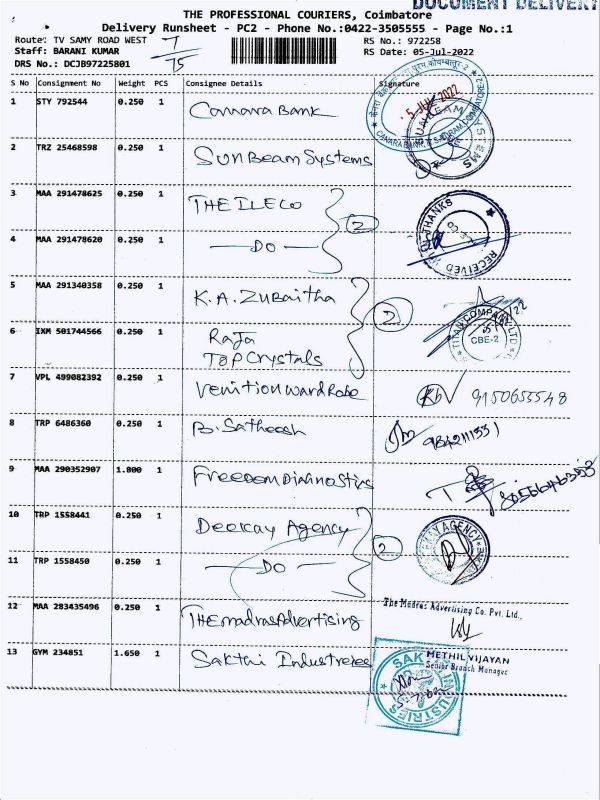 DOCUMENT DELIVERY
THE PROFESSIONAL COURIERS, Coimbatore
Delivery Runsheet - PC2 - Phone No.:0422-3505555 - Page No.:1
Route: TV SAMY ROAD WEST T/TS RS No.: 972258
Staff: BARANI KUMAR RS Date: 05-Jul-2022
DRS No.: DCJB97225801
S No Consignment No Weight PCS Consignee Details Signature
1 STY 792544 0.250 1 Canara Bank 5 JUL 2022 CANARA BANK, R.S. PURAM, COIMBATORE-2
2 TRZ 25468598 0.250 1 SunBeam Systems SUNBEAM SYSTEMS
3 MAA 291478625 0.250 1 THE ILECO 2 RECEIVED WITH THANKS
4 MAA 291478620 0.250 1 —DO—
5 MAA 291340358 0.250 1 K.A. Zubaitha 2 TITAN COMPANY LTD CBE-2
6 IXM 501744566 0.250 1 Raja
Top Crystals
7 VPL 499082392 0.250 1 Venition Wardrobe 9150655548
8 TRP 6486360 0.250 1 B. Satheesh 9842111331
9 MAA 290352907 1.800 1 Freedom Diagnostics
10 TRP 1558441 0.250 1 Deekay Agency 2
11 TRP 1558450 0.250 1 —DO—
12 MAA 283435496 0.250 1 THE madras Advertising The Madras Advertising Co. Pvt. Ltd.,
13 GYM 234851 1.650 1 Sakthi Industries METHIL VIJAYAN
Senior Branch Manager
SAKTHI INDUSTRIES